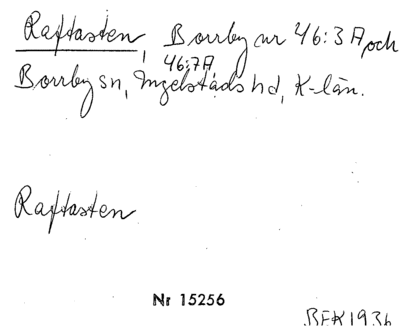 Raftasten, Borrby nr 46:3A och
46:7A
Borrby sn, Ingelstads hd, K-län.
Raftasten
Nr 15256
BEK 1936